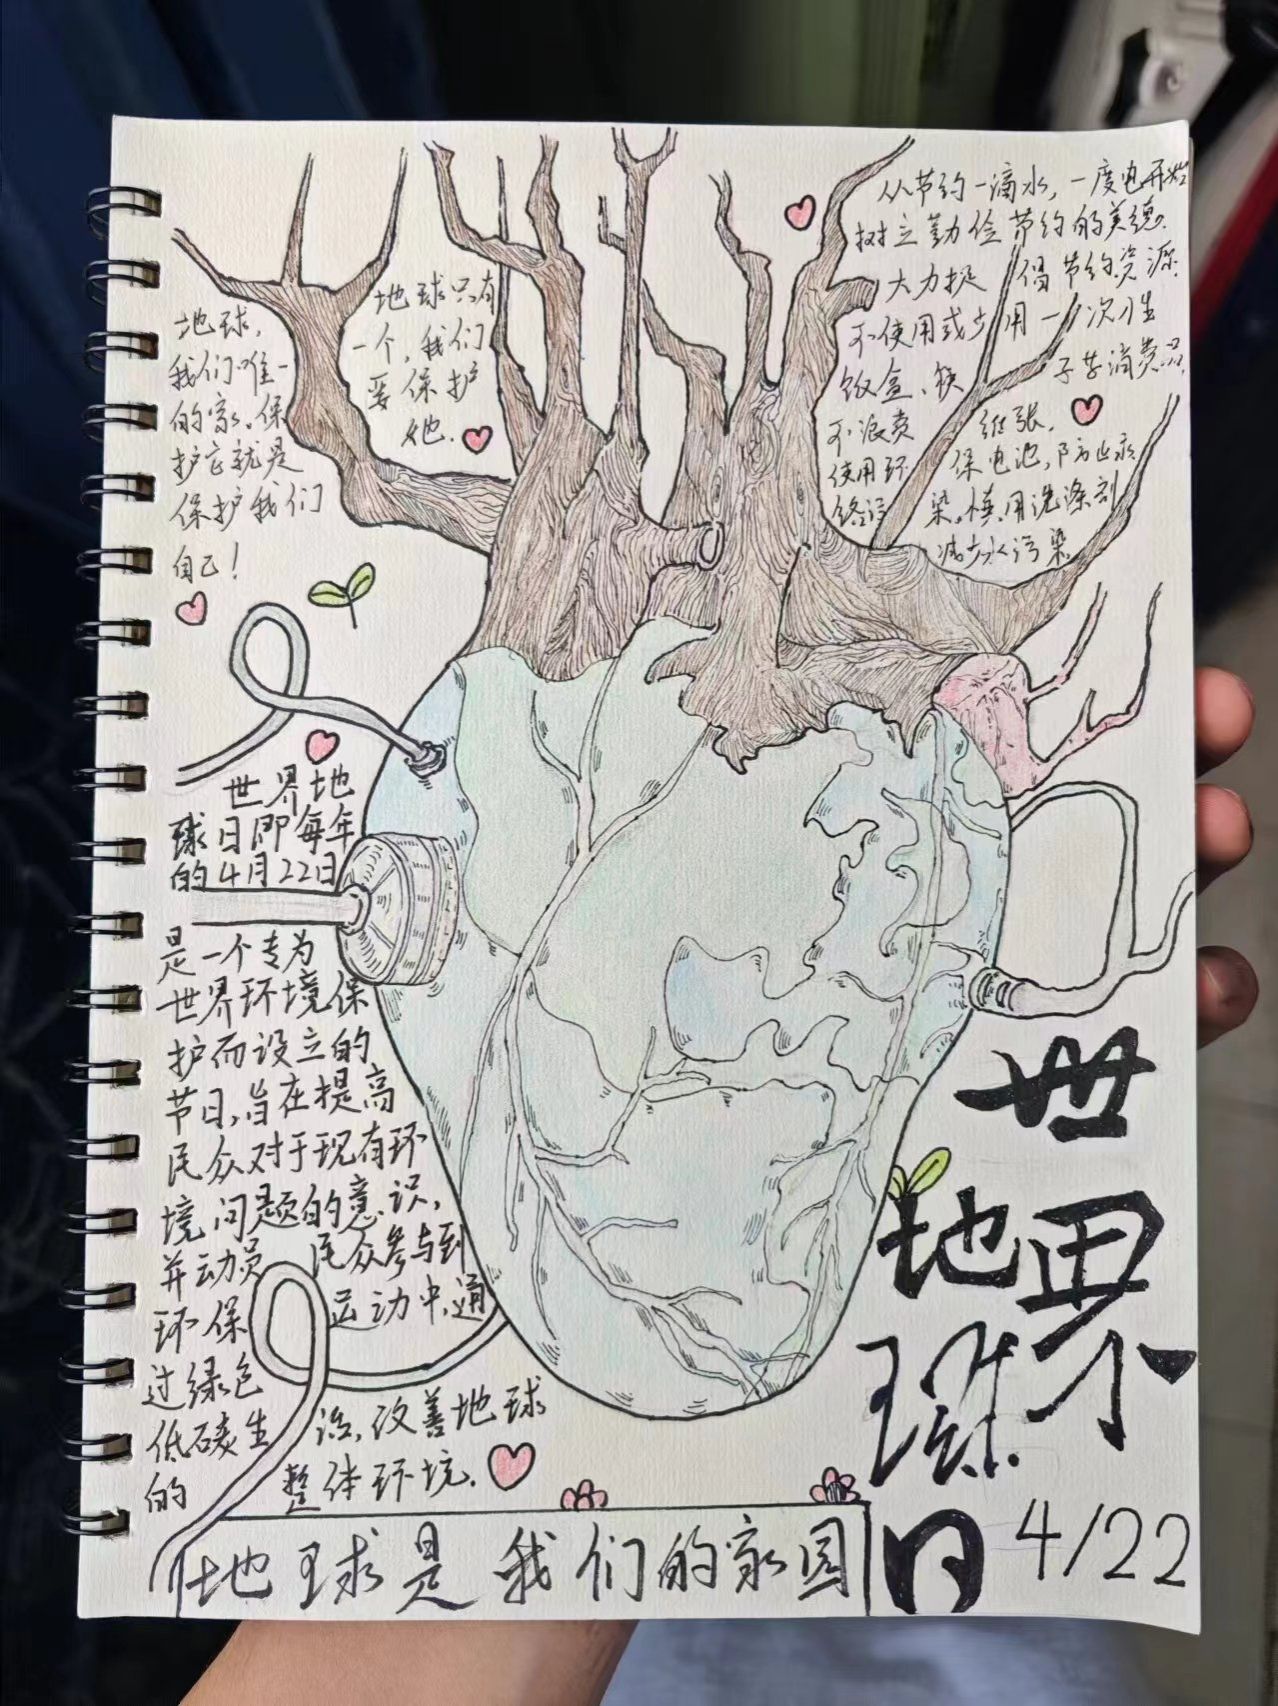 地球，
我们唯一
的家。保
护它就是
保护我们
自己！
地球只有
一个，我们
要保护
她．
从节约一滴水，一度电开始
树立勤俭节约的美德．
大力提倡节约资源
不使用或少用一次性
饭盒、筷子等消费品，
不浪费纸张．
使用环保电池，防止
染。慎用洗涤剂
减少水污染
世界地
球日即每年
的4月22日
是一个专为
世界环境保
护而设立的
节日，旨在提高
民众对于现有环
境问题的意识，
并动员民众参与到
环保运动中，通
过绿色
低碳生
的
活，改善地球
整体环境．
世界
地球
日 4/22
地球是我们的家园